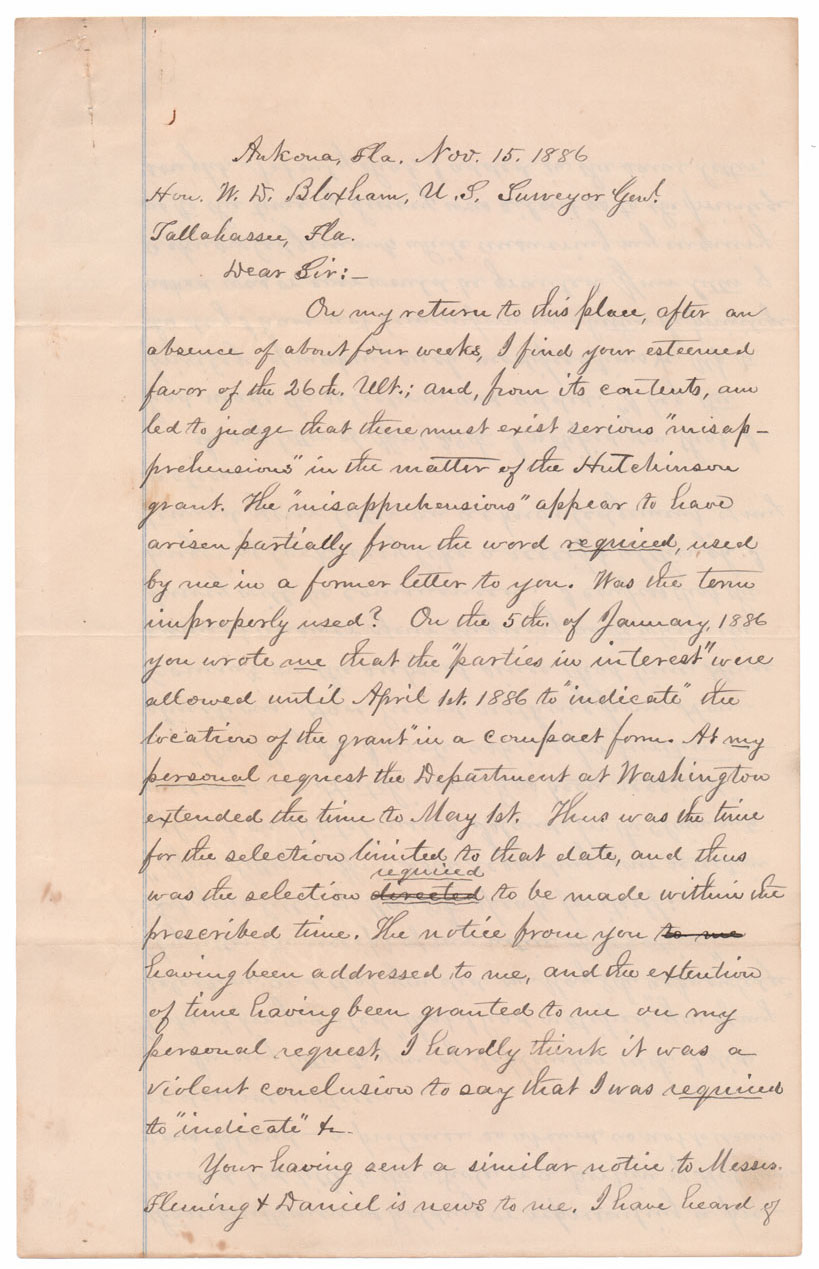 Ankona, Fla. Nov. 15. 1886
Hon. W. D. Bloxham, U. S. Surveyor Genl.
Tallahassee, Fla.
Dear Sir:—
On my return to this place, after an
absence of about four weeks, I find your esteemed
favor of the 26th. Ult.; and, from its contents, am
led to judge that there must exist serious "misap-
prehensions" in the matter of the Hutchinson
grant. The "misapprehensions" appear to have
arisen partially from the word required, used
by me in a former letter to you. Was the term
improperly used? On the 5th. of January, 1886
you wrote me that the "parties in interest" were
allowed until April 1st. 1886 to "indicate" the
location of the grant "in a compact form. At my
personal request the Department at Washington
extended the time to May 1st. Thus was the time
for the selection limited to that date, and thus
required
was the selection directed to be made within the
prescribed time. The notice from you to me
having been addressed to me, and the extention
of time having been granted to me on my
personal request, I hardly think it was a
violent conclusion to say that I was required
to "indicate" &c.
Your having sent a similar notice to Messrs.
Fleming & Daniel is news to me. I have heard of